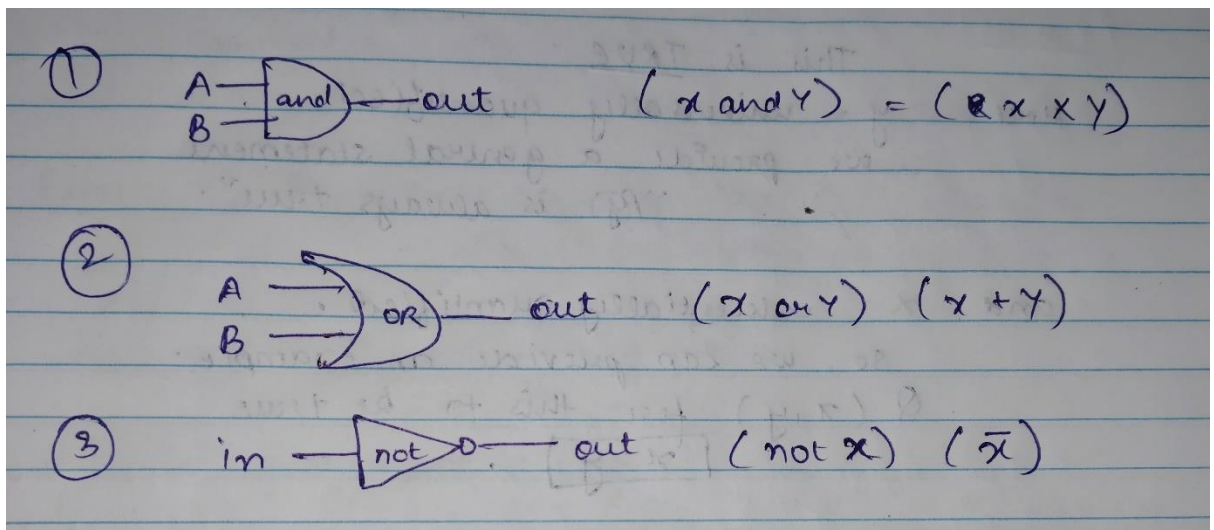 ① A and out (x and Y) = (x x Y)
B
② A OR out (x or Y) (x + Y)
B
③ in not out (not x) (x̄)